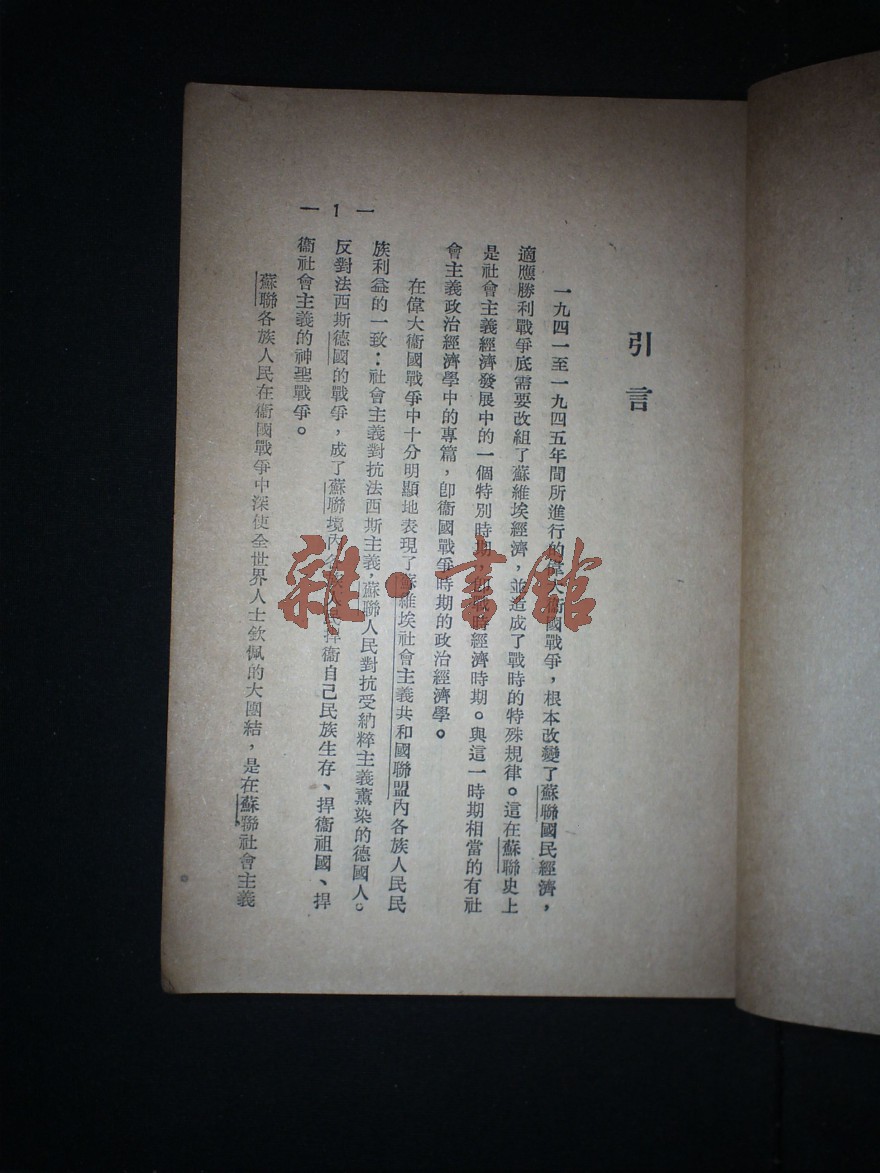 引言
一九四一至一九四五年間所進行的偉大衞國戰爭，根本改變了蘇聯國民經濟，
適應勝利戰爭底需要改組了蘇維埃經濟，並造成了戰時的特殊規律。這在蘇聯史上
是社會主義經濟發展中的一個特別時期，卽戰時經濟時期。與這一時期相當的有社
會主義政治經濟學中的專篇，卽衞國戰爭時期的政治經濟學。
在偉大衞國戰爭中十分明顯地表現了蘇維埃社會主義共和國聯盟內各族人民民
族利益的一致：社會主義對抗法西斯主義，蘇聯人民對抗受納粹主義薰染的德國人。
反對法西斯德國的戰爭，成了蘇聯境內各族人民捍衞自己民族生存、捍衞祖國、捍
衞社會主義的神聖戰爭。
蘇聯各族人民在衞國戰爭中深使全世界人士欽佩的大團結，是在蘇聯社會主義
— 1 —
雜·書館